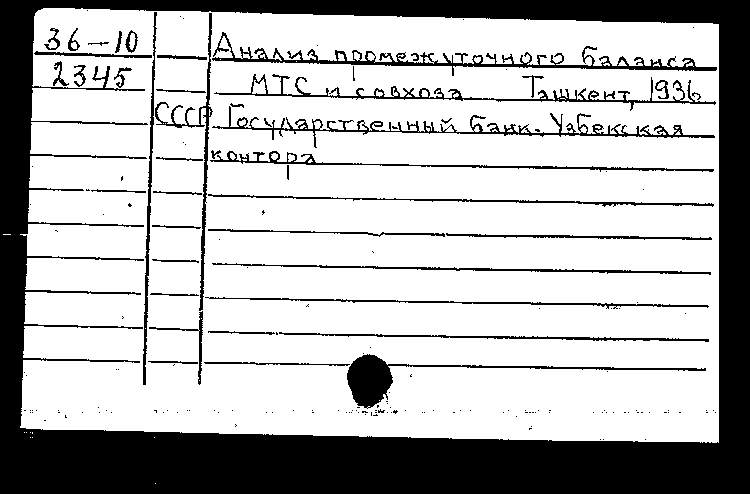 36-10 Анализ промежуточного баланса
2345 МТС и совхоза Ташкент, 1936
СССР Государственный банк. Узбекская
контора